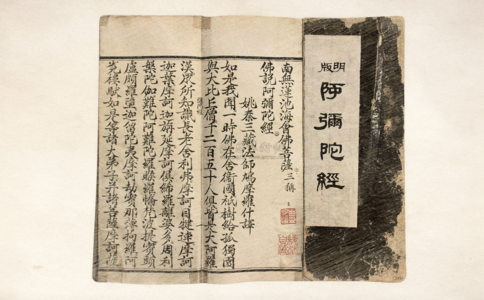 明版
阿彌陀經
南無蓮池海會佛菩薩三稱
佛說阿彌陀經
姚秦三藏法師鳩摩羅什譯
如是我聞一時佛在舍衛國祇樹給孤獨園
與大比丘僧千二百五十人俱皆大阿羅
漢眾所知識長老舍利弗摩訶目犍連摩訶
迦葉摩訶迦旃延摩訶俱絺羅離婆多周利
槃陀伽難陀阿難陀羅睺羅憍梵波提賓頭
盧頗羅墮迦留陀夷摩訶劫賓那薄拘羅阿